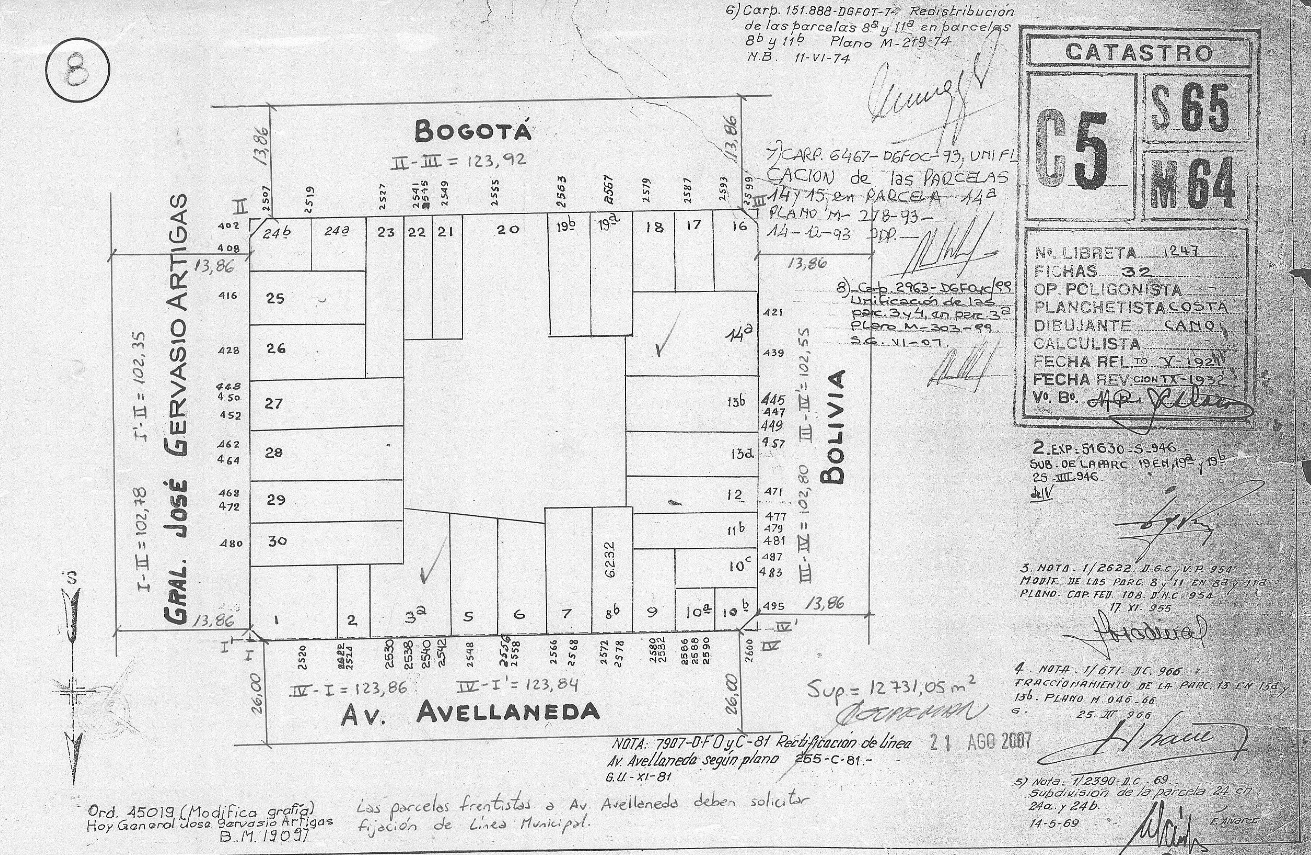 8
6) Carp. 151.888-DGFOT-7- Redistribución
de las parcelas 8ª y 11ª en parcelas
8b y 11b Plano M-219-74
N.B. 11-VI-74
CATASTRO
C5
S 65
M 64
BOGOTÁ
II-III = 123,92
13,86
13,86
7) CARP. 6467-DGFOC-93, UNIFI
CACION de las PARCELAS
14 y 15 en PARCELA 14ª
PLANO M- 278-93-
8) Carp. 2963-DGFOyC/99
Unificación de las
parc. 3 y 4, en parc. 3ª
Plano M-303-99
S.G. VI-07.
Nº LIBRETA 1247
FICHAS 32
OP. POLIGONISTA
PLANCHETISTA COSTA
DIBUJANTE CANO
CALCULISTA
FECHA RELTO V-192
FECHA REVCION IX-1932
Vº. Bº.
2507
2519
2527
2541
2545
2549
2555
2563
2567
2579
2587
2593
2599
II
III
402
408
13,86
13,86
24b
24a
23
22
21
20
19b
19a
18
17
16
416
25
421
428
26
14ª
439
448
450
452
27
13b
445
447
449
462
464
28
13a
457
468
472
29
12
471
480
30
11b
477
479
481
10c
487
483
6232
1
2
3ª
5
6
7
8b
9
10ª
10b
495
13,86
13,86
I'
I
IV'
IV
GRAL. JOSÉ GERVASIO ARTIGAS
I-II = 102,78 I'-II = 102,35
BOLIVIA
III-IV = 102,80 III-IV' = 102,55
2520
2522
2524
2530
2538
2540
2542
2548
2556
2558
2566
2568
2572
2578
2580
2582
2586
2588
2590
2600
26,00
26,00
IV-I = 123,86 IV-I' = 123,84
AV. AVELLANEDA
Sup = 12731,05 m²
2. EXP. 51630-S-946
SUB. DE LA PARC 19 EN 19ª y 19b
25 946
3. NOTA. 1/2622 D.G.C. V.P. 954
MODIF. DE LAS PARC. 8 y 11 EN 8a y 11a
PLANO. CAP. FED. 108. D.N.C. 954
17 XI. 955
4. NOTA. 1/671. D.C. 966
FRACCIONAMIENTO DE LA PARC. 13 EN 13a y
13b. PLANO M 046-66
966
5) Nota: 1/2390-D.C. 69
Subdivisión de la parcela 24 en
24a. y 24b.
14-5-69
S
NOTA: 7907-DFOyC-81 Rectificación de línea
Av. Avellaneda según plano 255-C-81.-
G.U.-XI-81
21 AGO 2007
Ord. 45019 (Modifica grafía)
Hoy General José Gervasio Artigas
B.M. 19097
Las parcelas frentistas a Av Avellaneda deben solicitar
fijación de Línea Municipal.